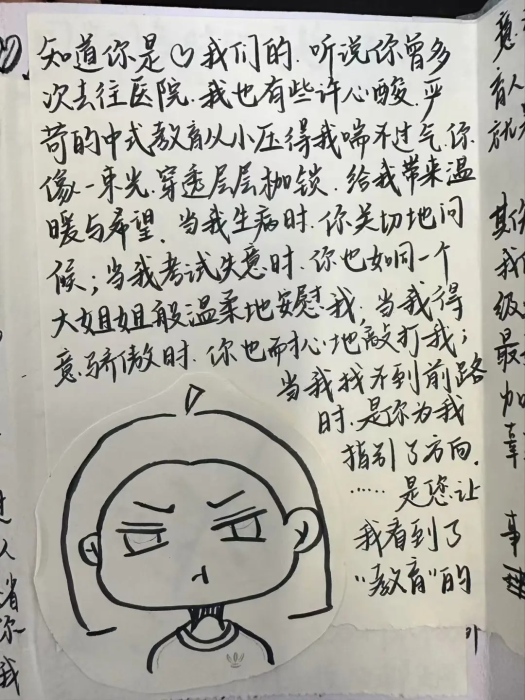 知道你是♡我们的.听说你曾多
次去往医院.我也有些许心酸.严
苛的中式教育从小压得我喘不过气.你
像一束光.穿透层层枷锁.给我带来温
暖与希望.当我生病时.你关切地问
候；当我考试失意时.你也如同一个
大姐姐般温柔地安慰我，当我得
意骄傲时.你也耐心地敲打我；
当我找不到前路
时.是你为我
指引了方向.
……是您让
我看到了
“教育”的